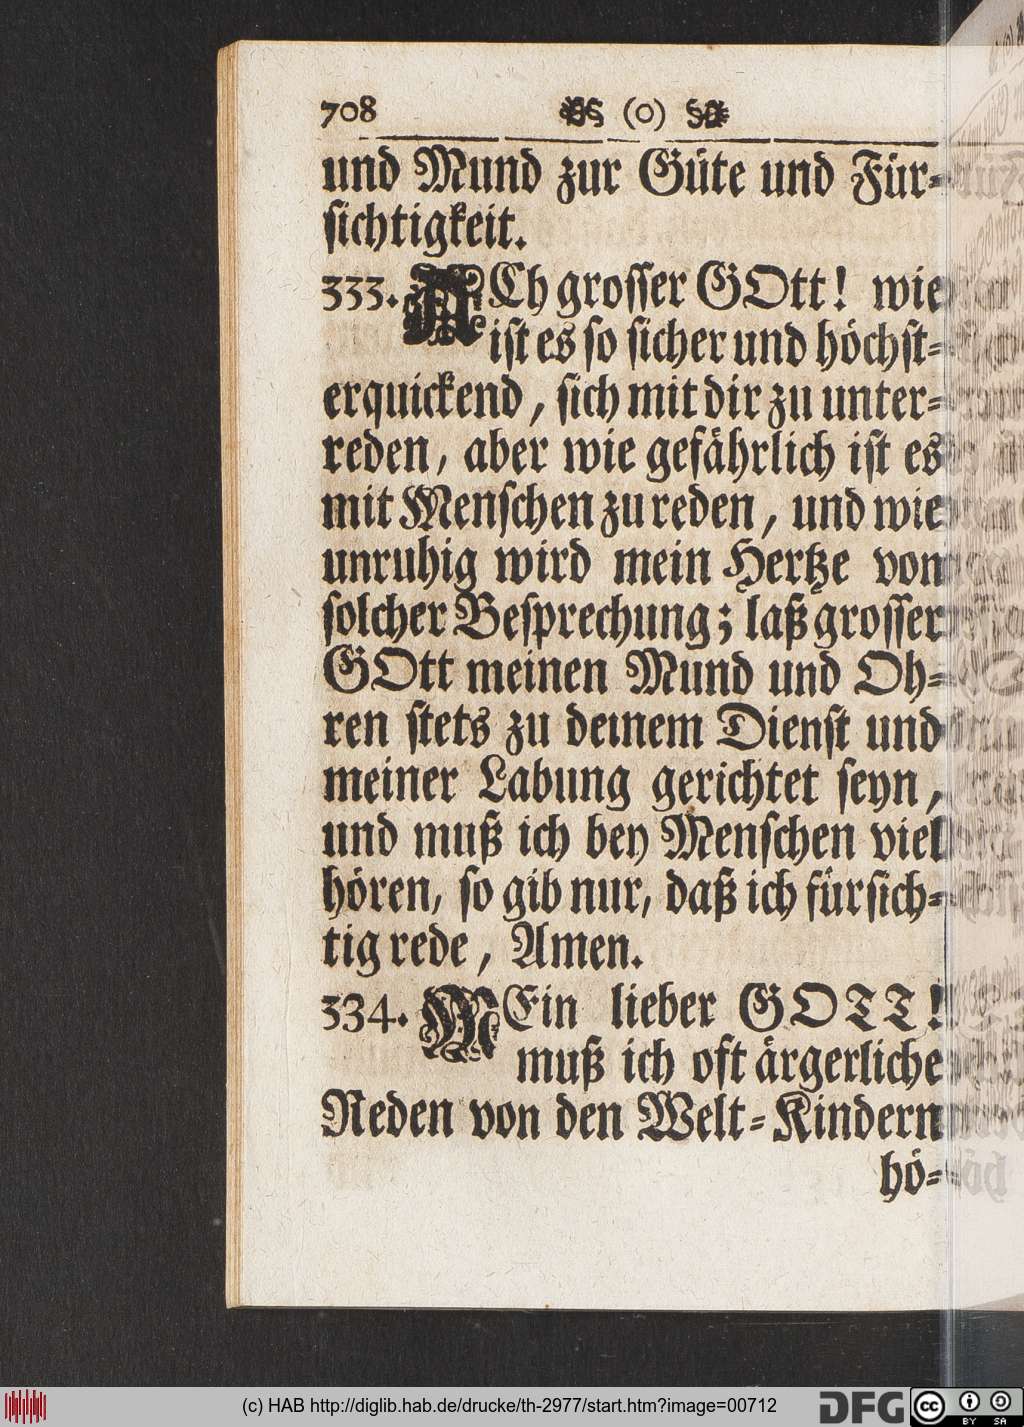 708 (o)
und Mund zur Güte und Für-
sichtigkeit.
333. ACh grosser GOtt! wie
ist es so sicher und höchst-
erquickend, sich mit dir zu unter-
reden, aber wie gefährlich ist es
mit Menschen zu reden, und wie
unruhig wird mein Hertze von
solcher Besprechung; laß grosser
GOtt meinen Mund und Oh-
ren stets zu deinem Dienst und
meiner Labung gerichtet seyn,
und muß ich bey Menschen viel
hören, so gib nur, daß ich fürsich-
tig rede, Amen.
334. MEin lieber GOTT!
muß ich oft ärgerliche
Reden von den Welt-Kindern
hö-
(c) HAB http://diglib.hab.de/drucke/th-2977/start.htm?image=00712
DFG cc BY SA